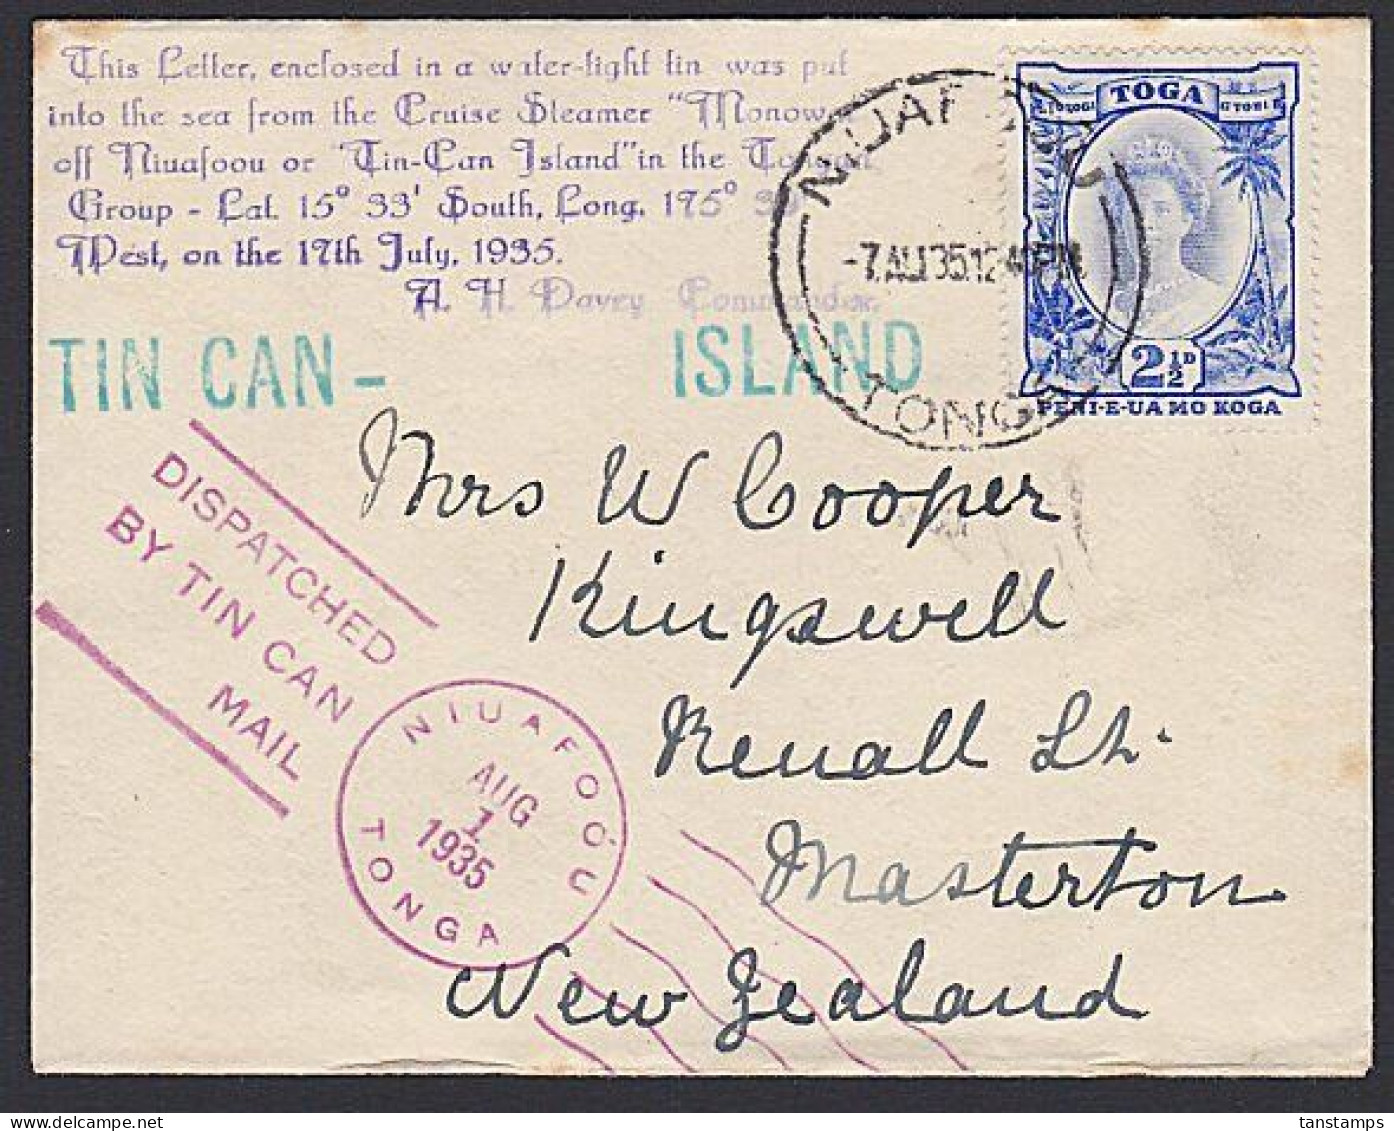 This Letter, enclosed in a water-tight tin was put
into the sea from the Cruise Steamer "Monowai
off Niuafoou or "Tin-Can Island" in the Tongan
Group - Lat. 15° 33' South, Long. 175°
West, on the 17th July, 1935.
A. H. Davey Commander.
TIN CAN - ISLAND
NIUAFOOU
-7 AU 35 12 40 PM
TONGA
TOGA
2½D
PENI-E-UA MO KOGA
DISPATCHED
BY TIN CAN
MAIL
NIUAFOÓU
AUG
1
1935
TONGA
Mrs W Cooper
Kingswell
Renall St.
Masterton
New Zealand
tanstamps